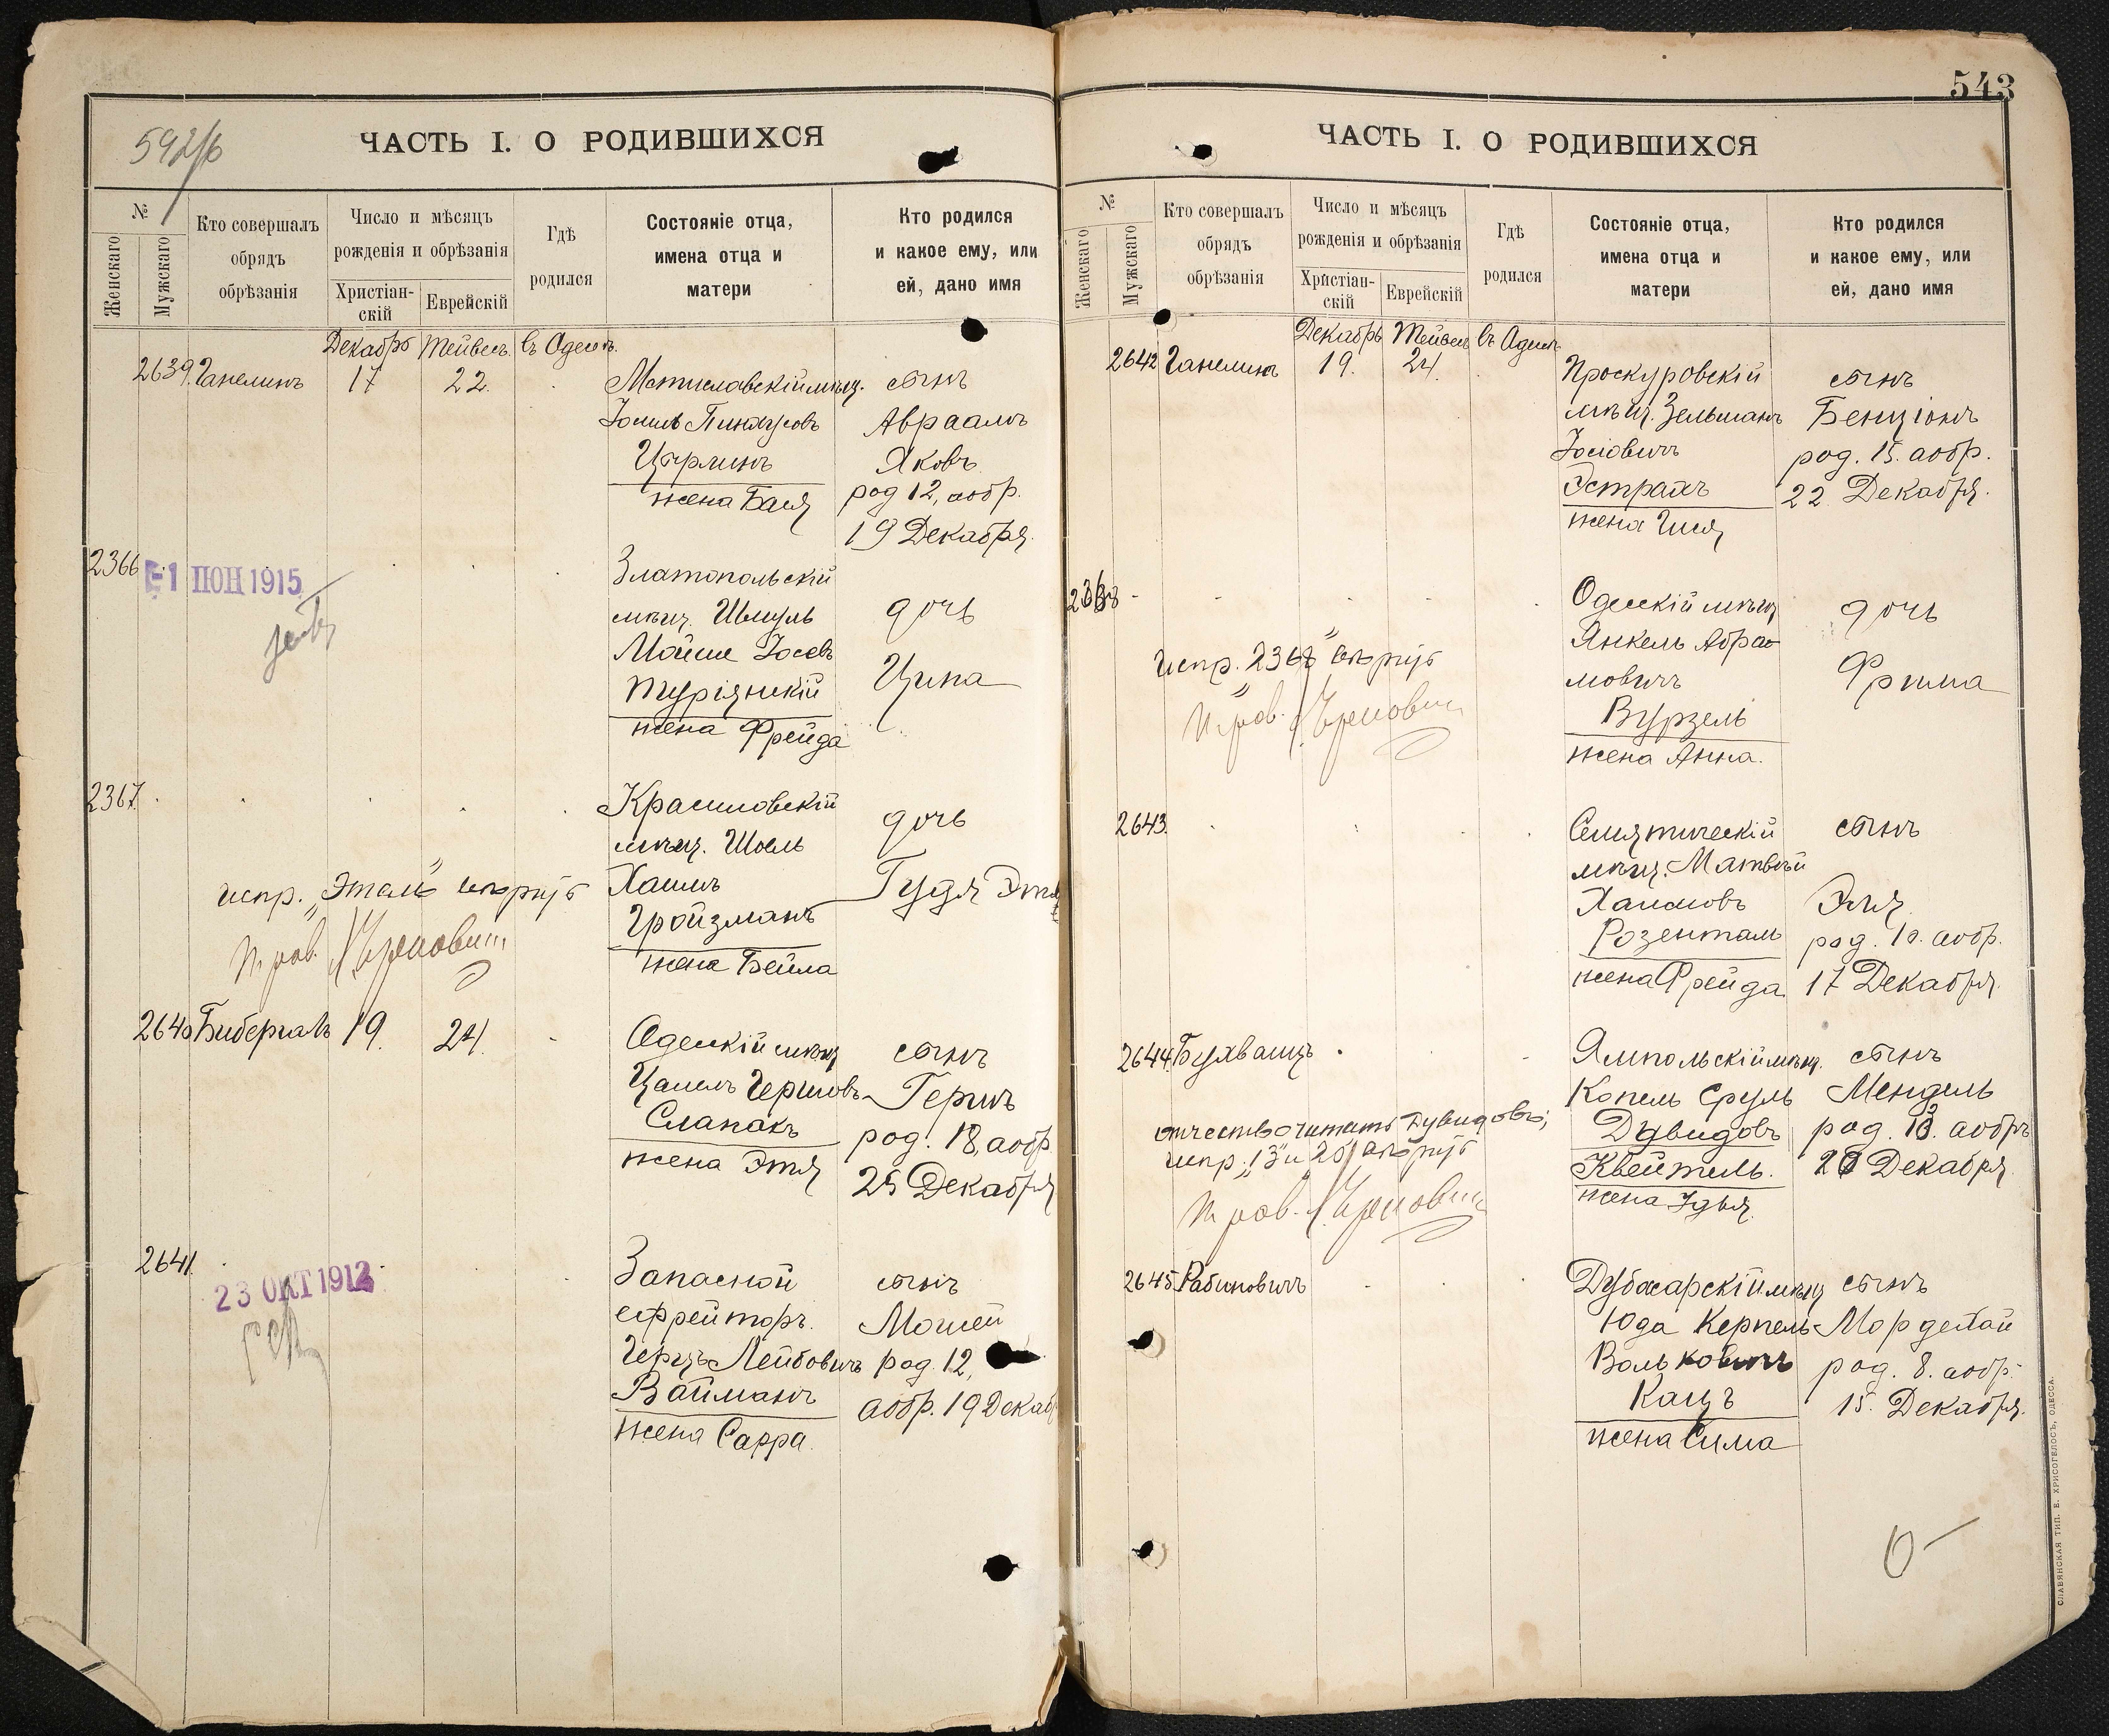 592/6
ЧАСТЬ I. О РОДИВШИХСЯ
№
Женскаго
Мужскаго
Кто совершалъ
обрядъ
обрѣзанія
Число и мѣсяцъ
рожденія и обрѣзанія
Христіан-
скій
Еврейскій
Гдѣ
родился
Состояніе отца,
имена отца и
матери
Кто родился
и какое ему, или
ей, дано имя
Декабрь Тейвесъ въ Одессѣ
2639. Ганелинъ 17 22. Мстиславскій мѣщ. сынъ
Пинхусовъ Авраамъ
Цырлинъ Яковъ
жена Бася род 12, аобр.
19 Декабря.
2366 1 ИЮН 1915 Златопольскій
мѣщ. Шмуль дочь
Мойше Іосевъ
Турянскій Ципа
жена Фрейда
2367. Красиловскій
мѣщ. Шоель дочь
испр. „Этель" вѣрнуѣ Хаимъ Гудя
Гройзманъ
жена Бейла
2640 Бибергалъ 19. 24. Одесскій мѣщ сынъ
Герш
Слапакъ род. 18, аобр.
жена Этя 25 Декабря
2641. 23 ОКТ 1912 Запасной сынъ
ефрейторъ. Мошей
Герцъ Лейбовичъ род. 12,
Вайманъ аобр. 19 Декаб
жена Сарра.
543
ЧАСТЬ I. О РОДИВШИХСЯ
№
Женскаго
Мужскаго
Кто совершалъ
обрядъ
обрѣзанія
Число и мѣсяцъ
рожденія и обрѣзанія
Христіан-
скій
Еврейскій
Гдѣ
родился
Состояніе отца,
имена отца и
матери
Кто родился
и какое ему, или
ей, дано имя
Декабрь Тейвесъ въ Одессѣ
2642 Ганелинъ 19. 24. Проскуровскій сынъ
мѣщ. Зельманъ Бенціонъ
Іосіовичъ род. 15. аобр.
Эстрахъ 22 Декабря.
жена
2368 Одесскій мѣщ дочь
Янкель Абра-
испр. „2368" мовичъ Фрима
Вурзель
жена Анна.
2643. сынъ
мѣщ. Матвѣй
Хаимовъ Эля
Розенталь род. 10. аобр.
жена Фрейда 17 Декабря.
2644. Бухвацъ Ямпольскій мѣщ. сынъ
Копель Сруль Мендель
отчество читать Дувидовъ; Дувидовъ род. 13. аобръ
испр. „13" и 20 Квейтель. 20 Декабря.
жена
2645 Рабиновичъ Дубоссарскій мѣщ сынъ
Юда Керпель Мордехай
Вольковичъ род. 8. аобр.
Кацъ 15. Декабря.
жена Сима
СЛАВЯНСКАЯ ТИП. Е. ХРИСОГЕЛОСЪ, ОДЕССА.